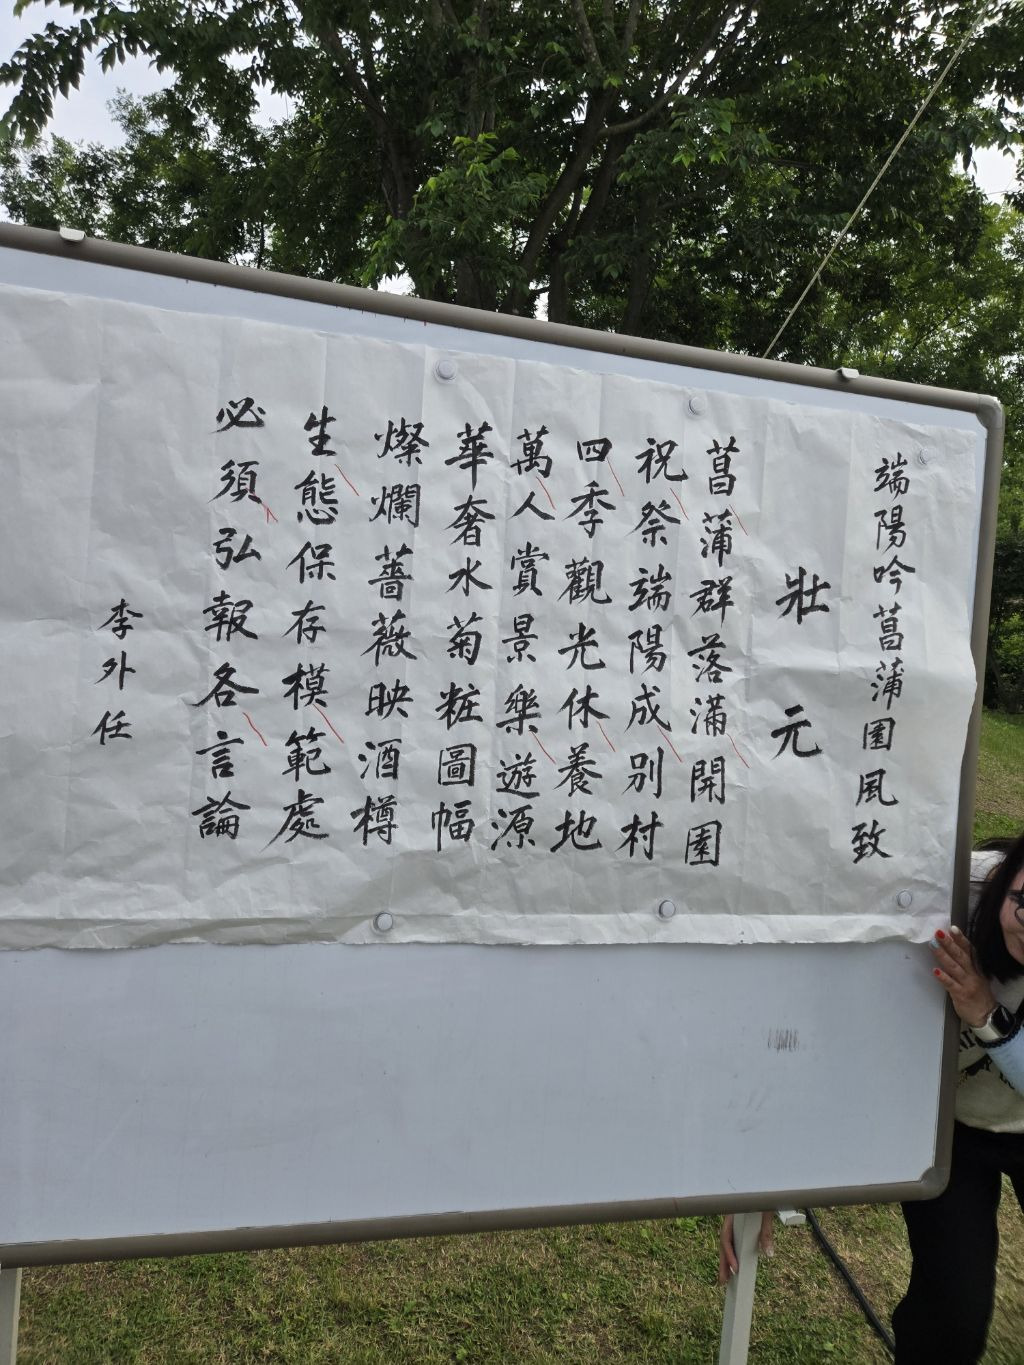 端陽吟菖蒲園風致
壯元
菖蒲群落滿開園
祝祭端陽成別村
四季觀光休養地
萬人賞景樂遊源
華奢水菊粧圖幅
燦爛薔薇映酒樽
生態保存模範處
必須弘報各言論
李外任